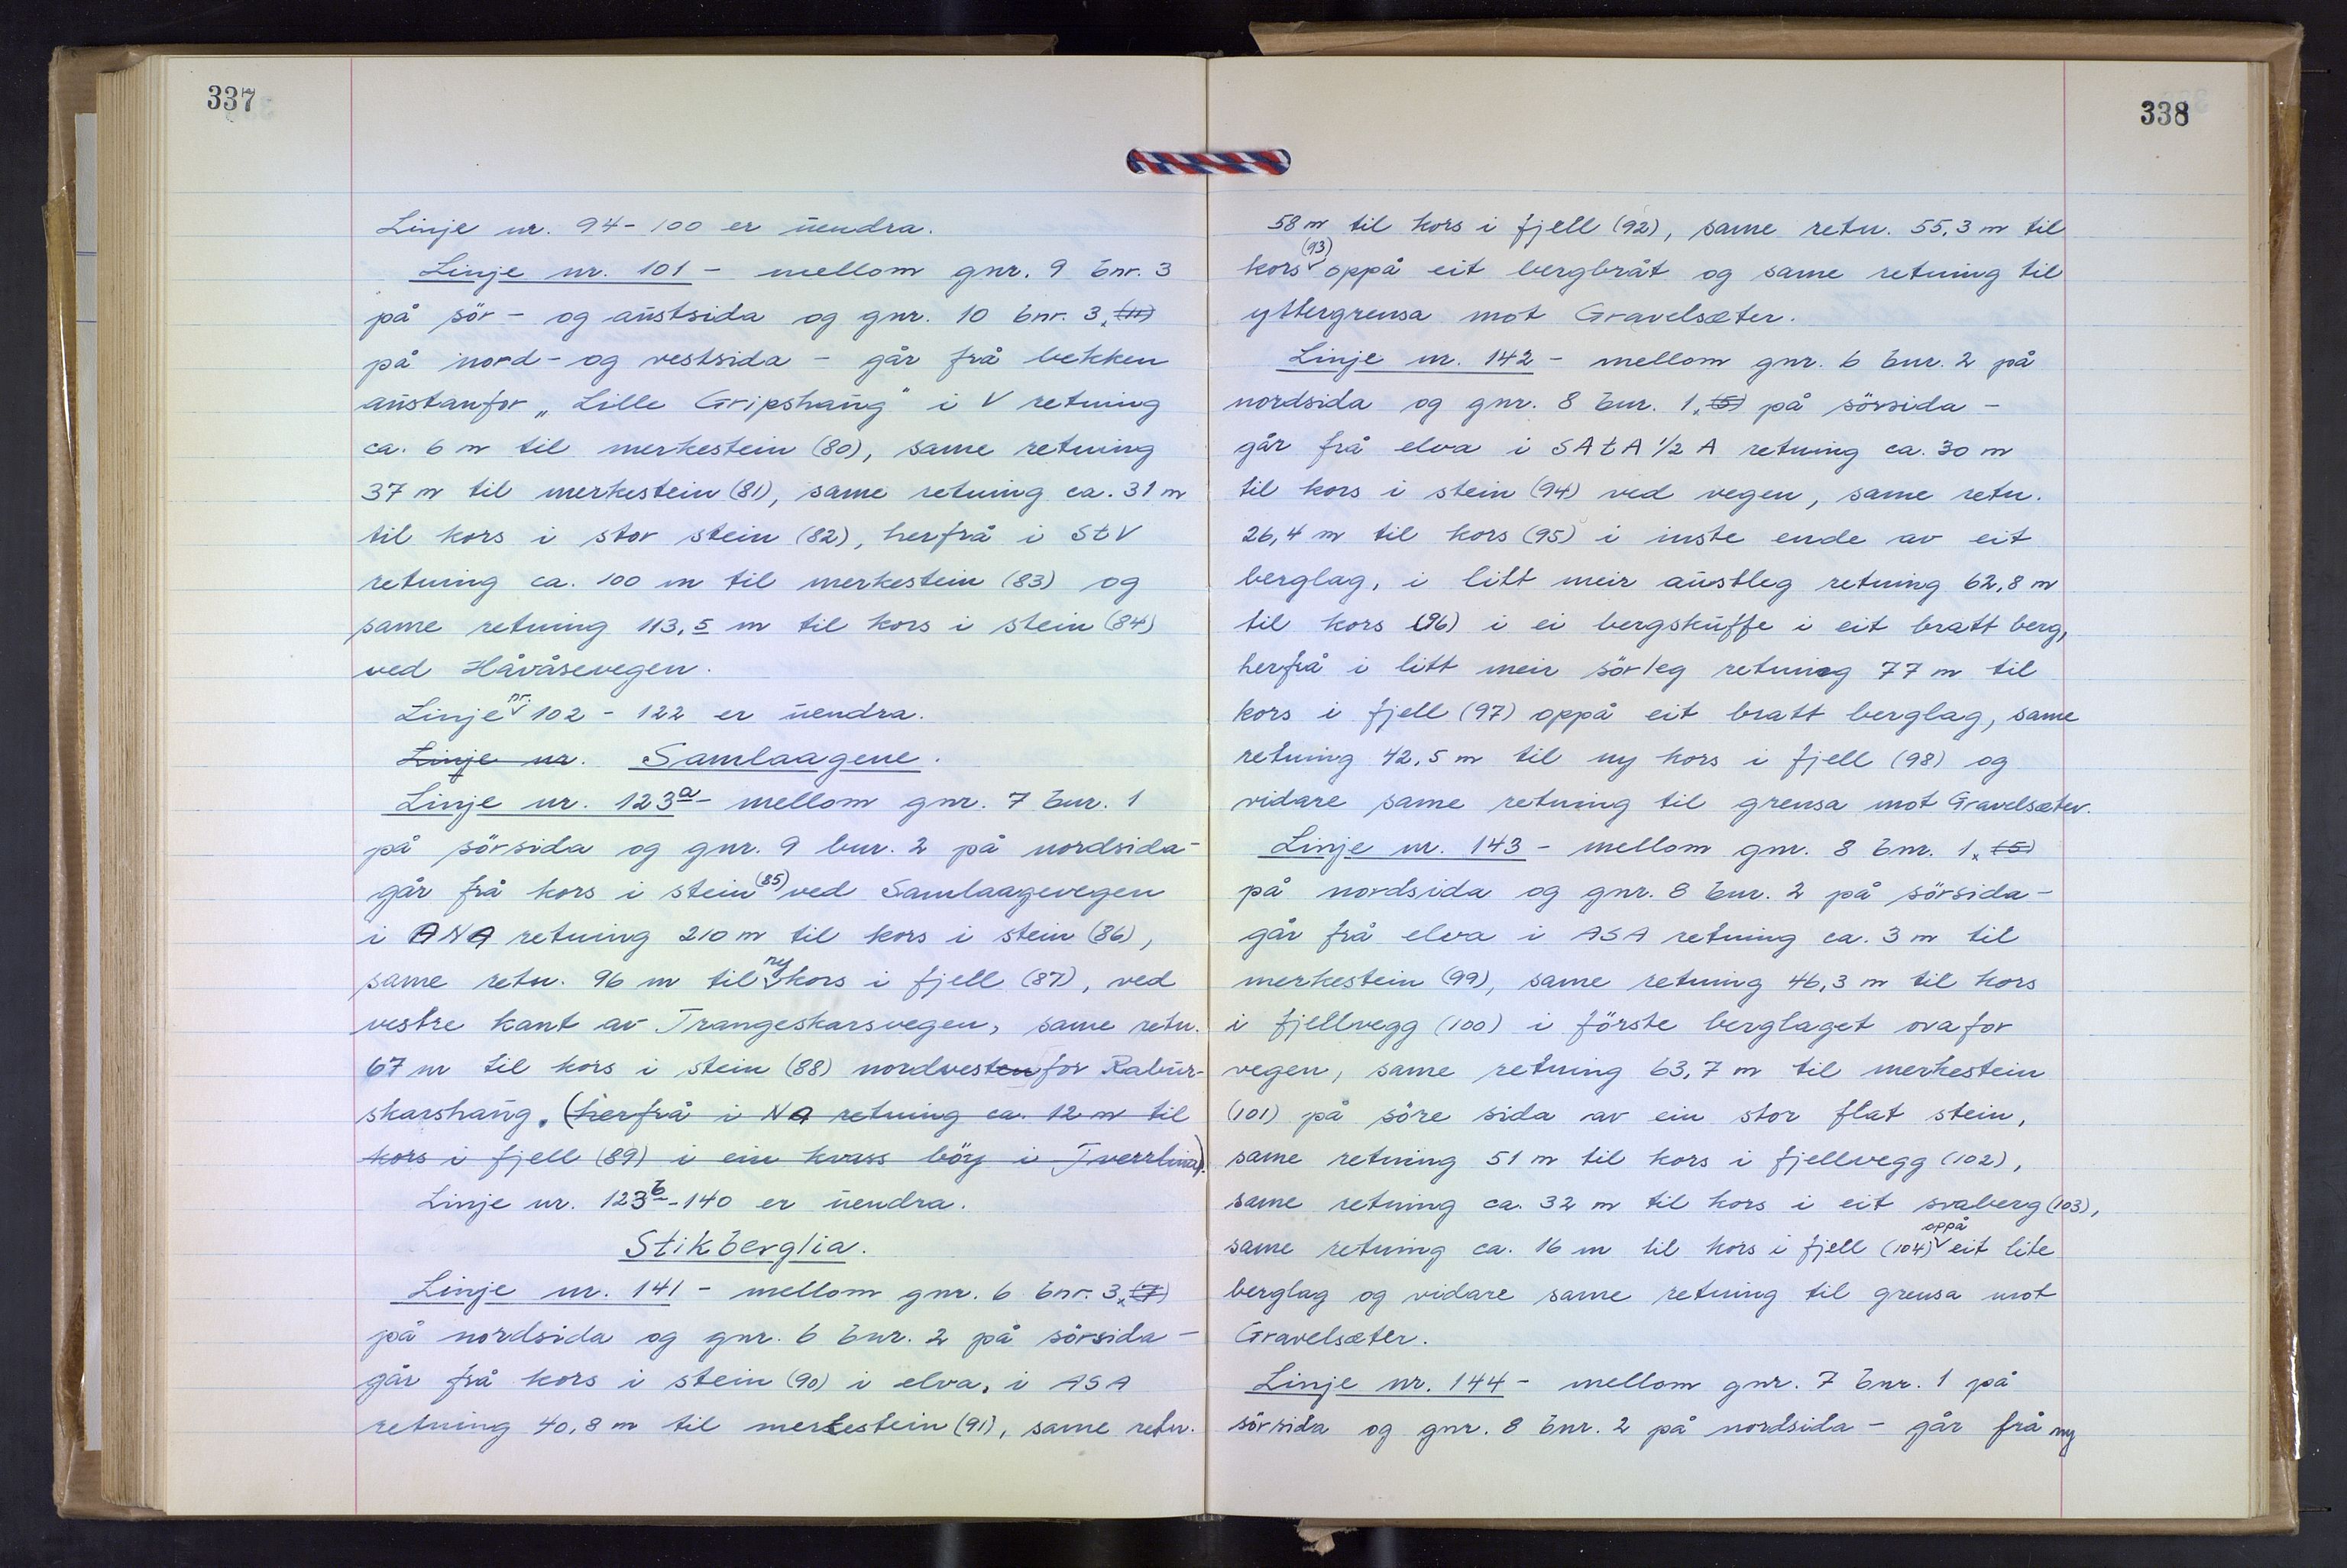 337
Linje nr. 94-100 er uendra.
Linje nr. 101 - mellom gnr. 9 bnr. 3
på sör- og austsida og gnr. 10 bnr. 3, (11)
på nord- og vestsida - går frå bekken
austanfor „Lille Gripshaug" i V retning
ca. 6 m til merkestein (80), same retning
37 m til merkestein (81), same retning ca. 31 m
til kors i stor stein (82), herfrå i StV
retning ca. 100 m til merkestein (83) og
same retning 113,5 m til kors i stein (84)
ved Håvåsevegen.
Linje nr. 102 - 122 er uendra.
Linje nr. Samlaagene.
Linje nr. 123a - mellom gnr. 7 bnr. 1
på sörsida og gnr. 9 bnr. 2 på nordsida -
går frå kors i stein (85) ved Samlaagevegen
i ANA retning 210 m til kors i stein (86),
same retn. 96 m til ny kors i fjell (87), ved
vestre kant av Trangeskarsvegen, same retn.
67 m til kors i stein (88) nordvesten for Rabur-
skarshaug. (herfrå i NA retning ca. 12 m til
kors i fjell (89) i ein kvass böy i Tverrlina).
Linje nr. 123b - 140 er uendra.
Stikberglia.
Linje nr. 141 - mellom gnr. 6 bnr. 3, (7)
på nordsida og gnr. 6 bnr. 2 på sörsida -
går frå kors i stein (90) i elva, i ASA
retning 40,8 m til merkestein (91), same retn.
338
58 m til kors i fjell (92), same retn. 55,3 m til
kors (93) oppå eit bergbråt og same retning til
yttergrensa mot Gravelsæter.
Linje nr. 142 - mellom gnr. 6 bnr. 2 på
nordsida og gnr. 8 bnr. 1, (5) på sörsida -
går frå elva i SAtA 1/2 A retning ca. 30 m
til kors i stein (94) ved vegen, same retn.
26,4 m til kors (95) i inste ende av eit
berglag, i litt meir austleg retning 62,8 m
til kors (96) i ei bergskuffe i eit bratt berg,
herfrå i litt meir sörleg retning 77 m til
kors i fjell (97) oppå eit bratt berglag, same
retning 42,5 m til ny kors i fjell (98) og
vidare same retning til grensa mot Gravelsæter.
Linje nr. 143 - mellom gnr. 8 bnr. 1, (5)
på nordsida og gnr. 8 bnr. 2 på sörsida -
går frå elva i ASA retning ca. 3 m til
merkestein (99), same retning 46,3 m til kors
i fjellvegg (100) i förste berglaget ovafor
vegen, same retning 63,7 m til merkestein
(101) på söre sida av ein stor flat stein,
same retning 51 m til kors i fjellvegg (102),
same retning ca. 32 m til kors i eit svaberg (103),
same retning ca. 16 m til kors i fjell (104) oppå eit lite
berglag og vidare same retning til grensa mot
Gravelsæter.
Linje nr. 144 - mellom gnr. 7 bnr. 1 på
sörsida og gnr. 8 bnr. 2 på nordsida - går frå ny